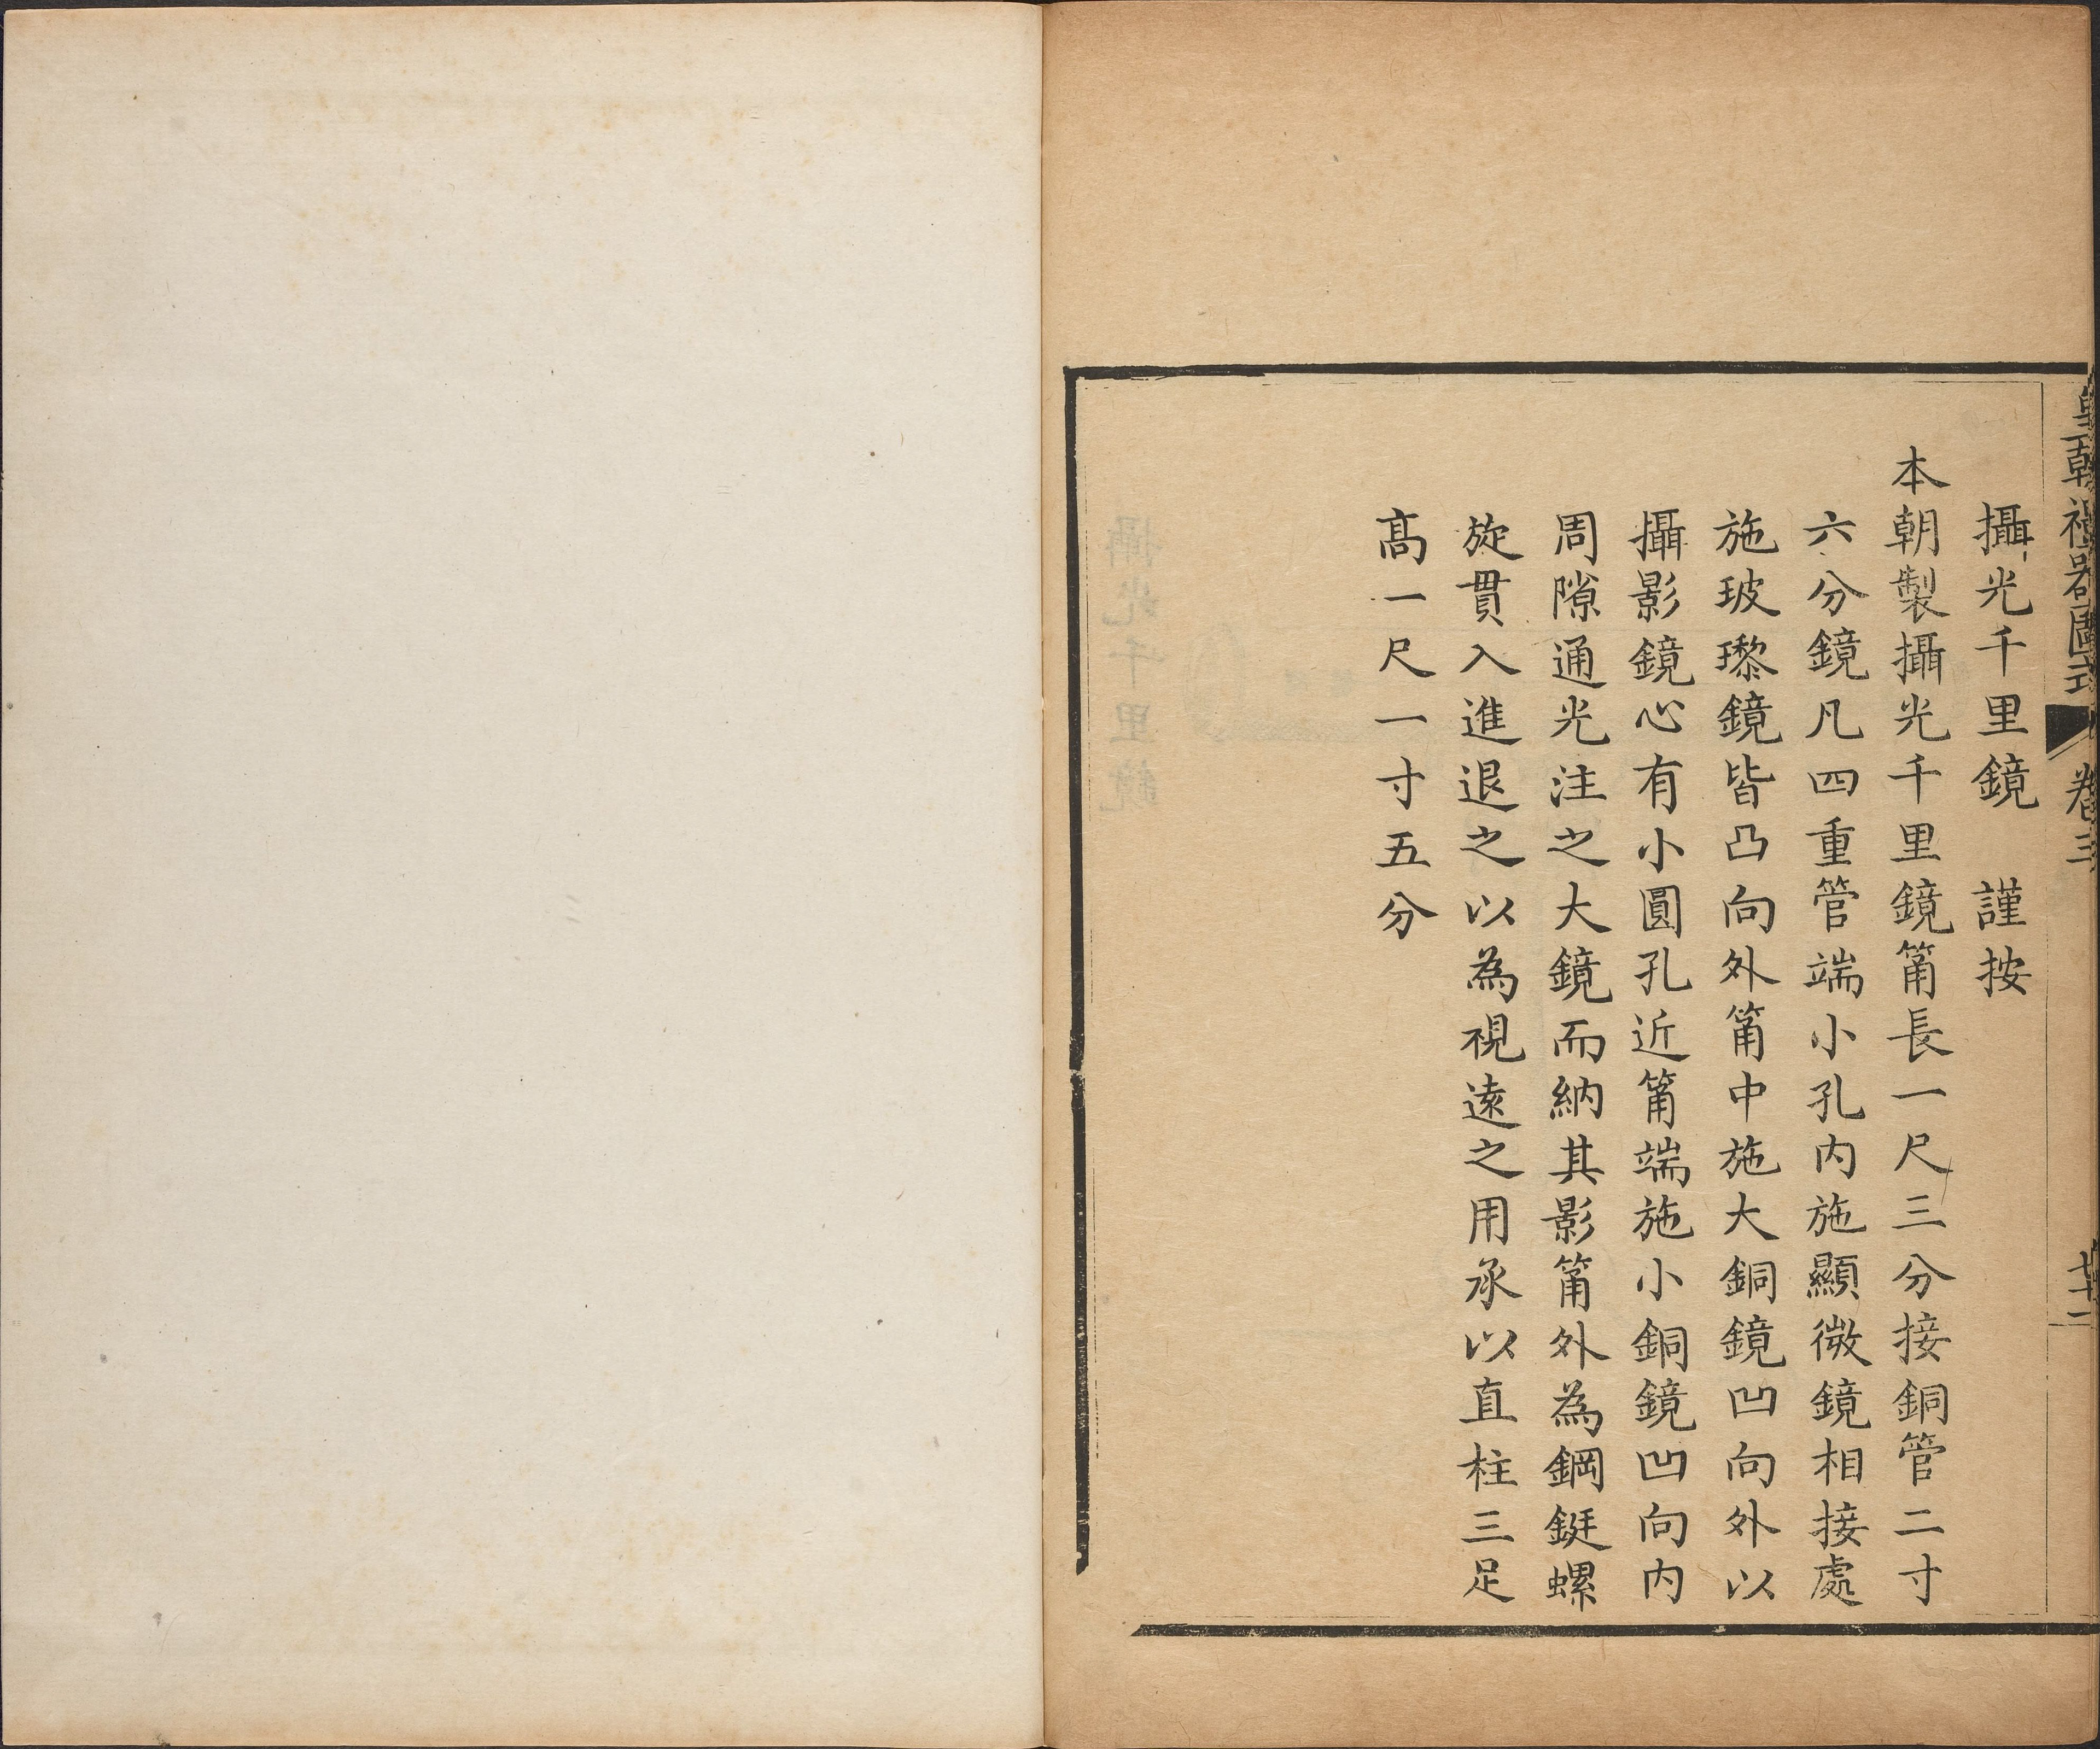 皇朝禮器圖式 卷三 七十一
攝光千里鏡 謹按
本朝製攝光千里鏡筩長一尺三分接銅管二寸
六分鏡凡四重管端小孔内施顯微鏡相接處
施玻瓈鏡皆凸向外筩中施大銅鏡凹向外以
攝影鏡心有小圓孔近筩端施小銅鏡凹向内
周隙通光注之大鏡而納其影筩外為鋼鋌螺
旋貫入進退之以為視遠之用承以直柱三足
高一尺一寸五分